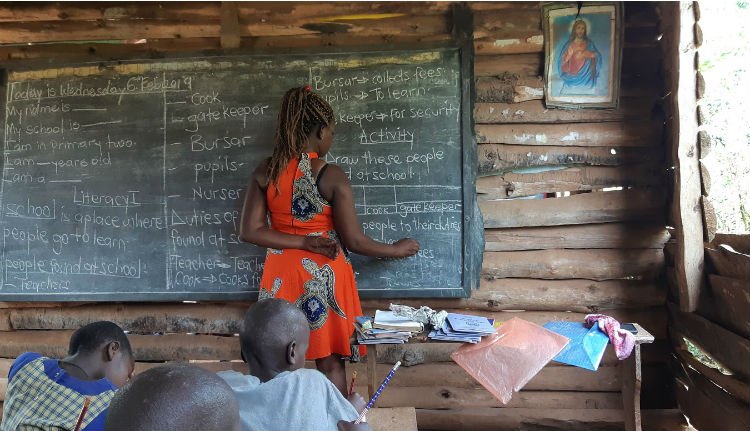 Today is Wednesday 6th Feb 2019
My name is
My school is
I am in primary two.
I am years old
I am a
Literacy I
school is a place where
people go to learn.
people found at school
- Teachers
- Cook
- gate keeper
- Bursar
- pupils
- Nurse
Duties of
found at
Teacher → Teach
Cook → Cooks f
Bursar → collects fees
pupils → To learn.
keeper → for security
Activity
Draw these people
at school
cook gate keeper
people to their duties
fees